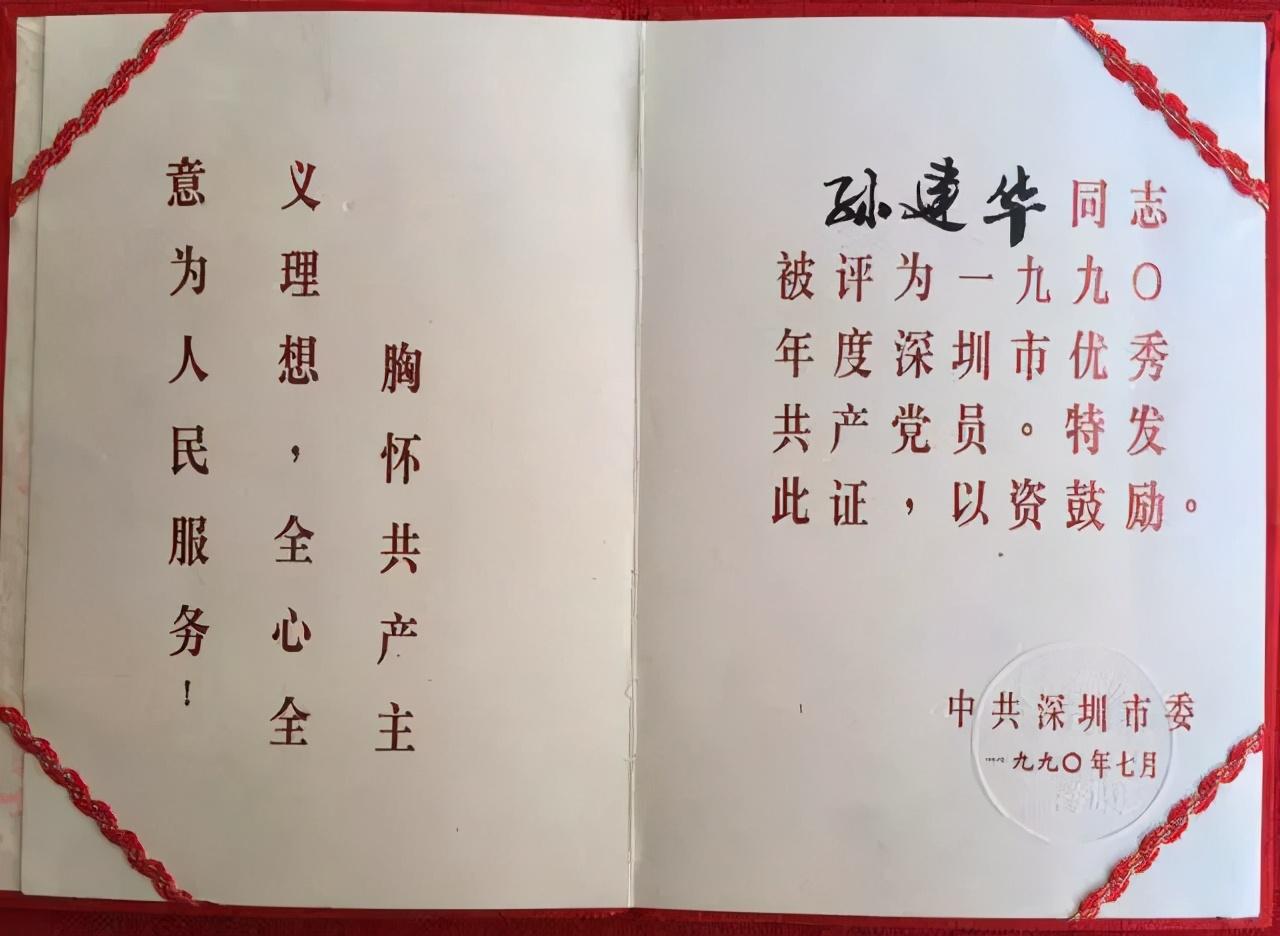 胸怀共产主
义理想，全心全
意为人民服务！
孙建华同志
被评为一九九〇
年度深圳市优秀
共产党员。特发
此证，以资鼓励。
中共深圳市委
一九九〇年七月